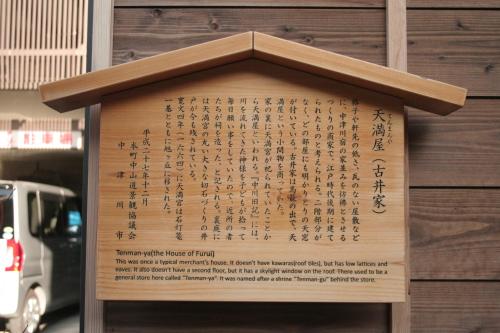 てんまんや
天満屋（古井家）
格子や軒先の低さ、瓦のない屋敷など
に、中津川宿の家並みを彷彿とさせる
つくりの商家で、江戸時代後期に建て
られたものと考えられる。二階部分が
なく、どの部屋にも明かりとりの天窓
が付いている。古井家は
満屋という小間物を商う
家が裏に天満宮が祀られていたことか
ら天満屋といわれる。『中川旧記』には、
川を流れてきた神様を子どもが拾って
毎日願い事をしていたので、近所の者
たちが祠を造った、と記される。裏庭に
は天満宮の丸い大きな切石づくりの井
戸が今も残されている。
寛文四年（一六六四）に天満宮は石灯篭
一基とともに桃ヶ丘に移された。
平成二十七年十二月
本町中山道景観協議会
中津川市
Tenman-ya(the House of Furui)
This was once a typical merchant's house. It doesn't have kawaras(roof tiles), but has low lattices and
eaves. It also doesn't have a second floor, but it has a skylight window on the roof. There used to be a
general store here called "Tenman-ya". It was named after a shrine "Tenman-gu" behind the store.